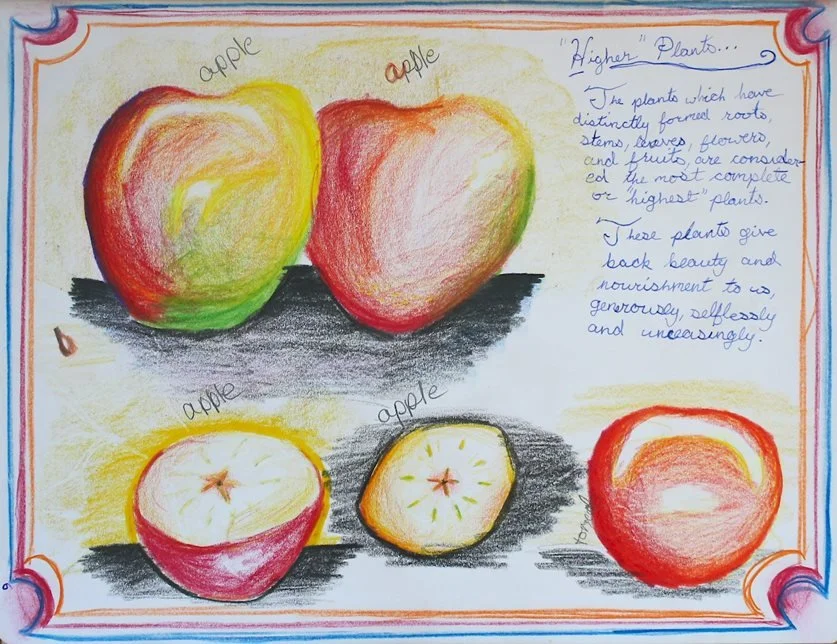 apple
apple
"Higher" Plants...
The plants which have
distinctly formed roots,
stems, leaves, flowers,
and fruits, are consider-
ed the most complete
or "highest" plants.
These plants give
back beauty and
nourishment to us,
generously, selflessly
and unceasingly.
apple
apple